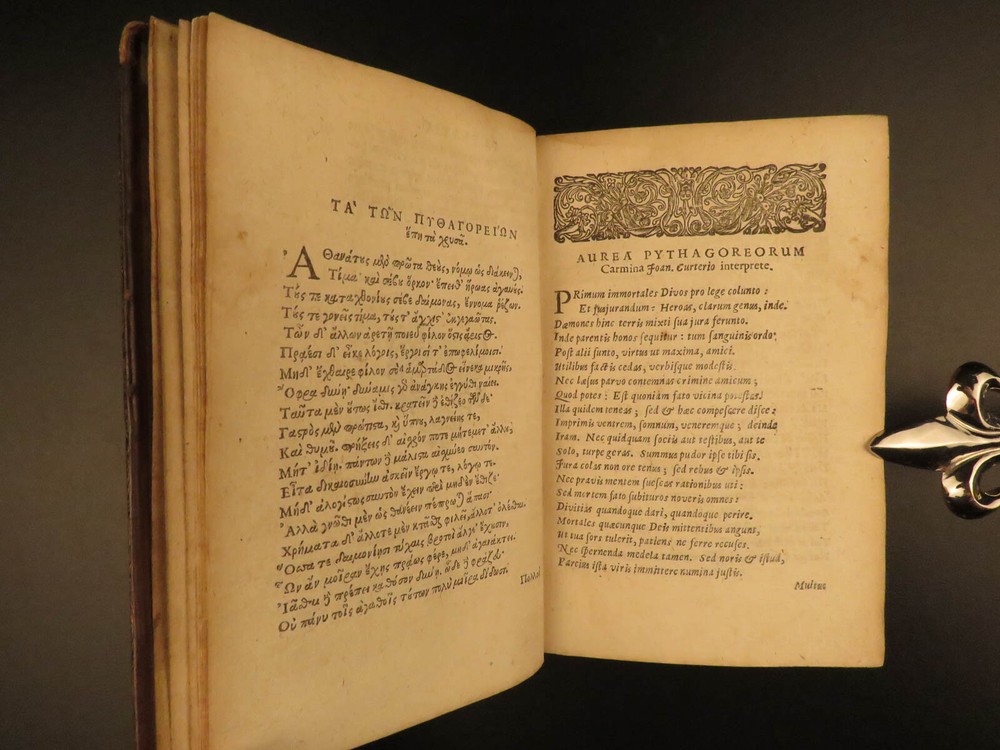 ΤΑ' ΤΩ͂Ν ΠΥΘΑΓΟΡΕΙΩΝ
ἔπη τὰ χρυσᾶ.
'ΑΘανάτȣς μὲν πρῶτα θεὺς, νόμῳ ὡς διάκειν),
Τίμα· καὶ σέβȣ ὅρκον· ἔπειθ' ἥρωας ἀγαυȣ́ς.
Τȣ́ς τε καταχθονίȣς σέβε δαίμονας, ἔννομα ῥέζων.
Τȣ́ς τε γονεῖς τίμα, τȣ́ς τ' ἄγχις' ἐκγεγαῶτας.
Τῶν δ' ἄλλων ἀρετῇ ποιεῦ φίλον ὅςις ἄριςος.
Πραέσι δ' εἶκε λόγοις, ἔργοισί τ' ἐπωφελίμοισι.
Μηδ' ἔχθαιρε φίλον σὸν ἁμαρτάδος εἵνεκα μικρῆς,
Ὄφρα δύνῃ· δύναμις γὸ ἀνάγκης ἐγγύθι ναίει.
Ταῦτα μὲν ȣ̓́τως ἴσθι. κρατεῖν ἢ ἐθίζεο τῶνδε·
Γαςρὸς μὲν πρώτιςα, κỳ ὕπνȣ, λαγνείης τε,
Καὶ θυμȣ͂. πρήξεις δ' αἰσχρόν ποτε μήτε μετ' ἄλλȣ,
Μήτ' ἰδίῃ. πάντων ἢ μάλιςα αἰσχύνεο σαυτόν.
Εἶτα δικαιοσύνην ἀσκεῖν ἔργῳ τε, λόγῳ τε.
Μηδ' ἀλογίςως σαυτὸν ἔχειν περὶ μηδὲν ἔθιζε·
Ἀλλὰ γνῶθι μὲν ὡς θανέειν πέπρω) ἅπασι·
Χρήματα δ' ἄλλοτε μὲν κτᾶσθαι φιλεῖ, ἄλλοτ' ὀλέσθαι.
Ὅσσα τε δαιμονίῃσι τύχαις βροτοὶ ἄλγε' ἔχȣσιν,
Ὧν ἂν μοῖραν ἔχῃς πράως φέρε, μηδ' ἀγανάκτει.
Ἰᾶσθαι ἢ πρέπει καθόσον δύνῃ. ὧδε ἢ φράζȣ·
Οὐ πάνυ τοῖς ἀγαθοῖς τȣ́των πολὺ μοῖρα δίδωσι.
Πολλοὶ
AUREA PYTHAGOREORUM
Carmina Joan. Curterio interprete.
PRimum immortales Divos pro lege colunto:
Et jusjurandum: Heroas, clarum genus, inde.
Dæmones hinc terris mixti sua jura ferunto.
Inde parentis honos sequitur: tum sanguinis ordo.
Post alii sunto, virtus ut maxima, amici.
Utilibus factis cedas, verbisque modestis.
Nec læsus parvo contemnas crimine amicum;
Quod potes: Est quoniam fato vicina potestas.
Illa quidem teneas; sed & hæc compescere disce:
Imprimis ventrem, somnum, veneremque; deinde
Iram. Nec quidquam sociis aut testibus, aut te
Solo, turpe geras. Summus pudor ipse tibi sis.
Jura colas non ore tenus; sed rebus & ipsis.
Nec pravis mentem suescas rationibus uti:
Sed mortem fato subituros noveris omnes:
Divitiis quandoque dari, quandoque perire.
Mortales quæcunque Deis mittentibus angunt,
Ut tua sors tulerit, patiens ne ferre recuses.
Nec spernenda medela tamen. Sed noris & istud,
Parcius ista viris immittere numina justis.
Multus